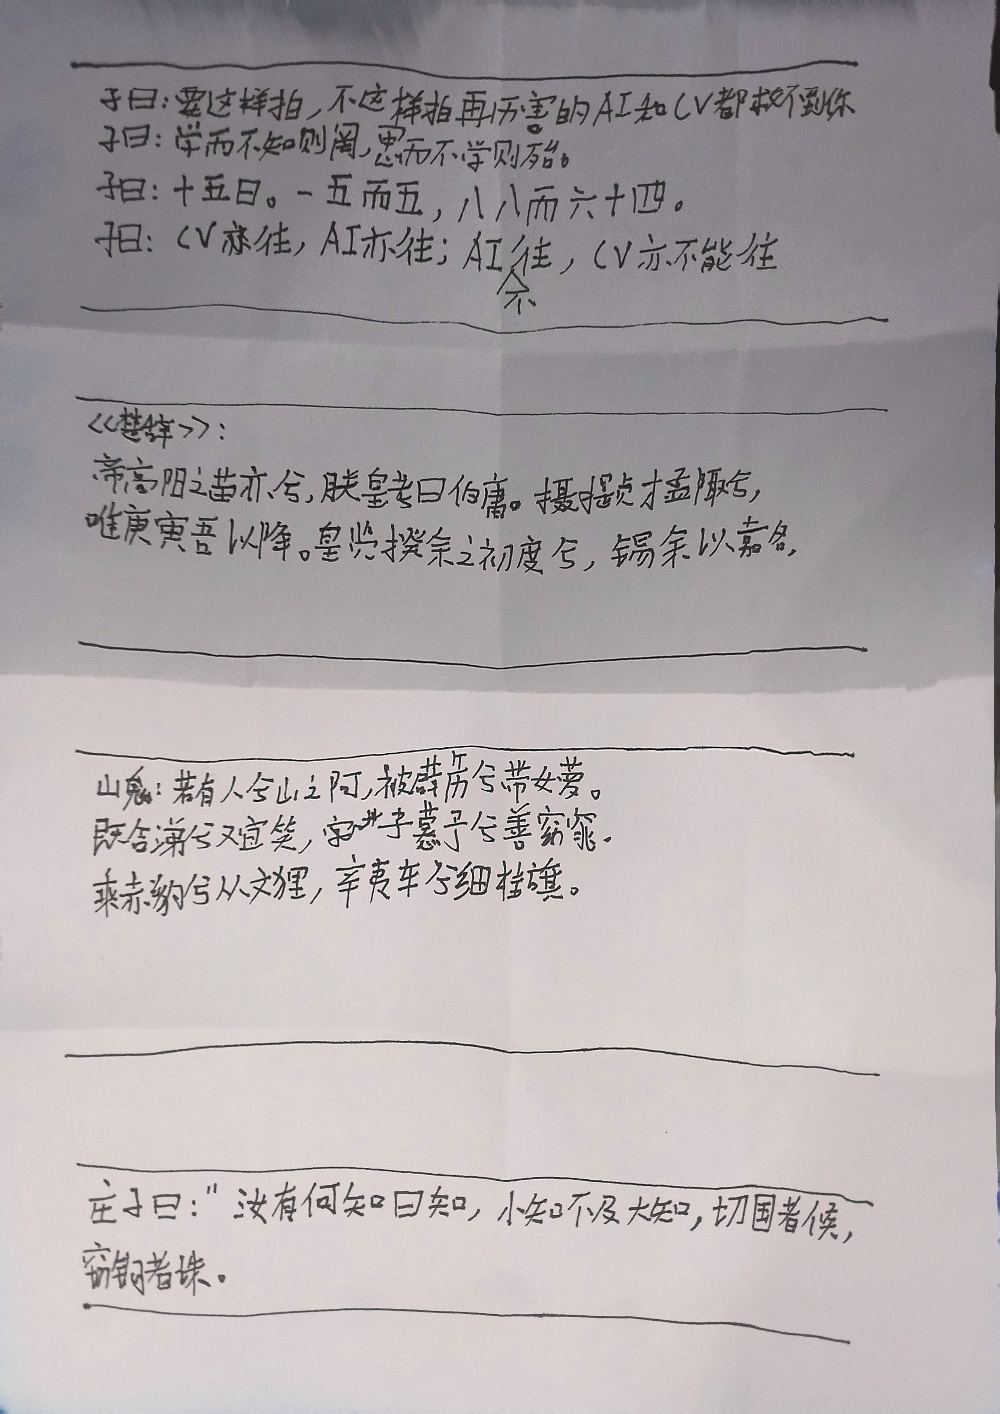 子曰：要这样拍，不这样拍再厉害的AI和CV都救不到你
子曰：学而不知则阁，思而不学则殆。
子曰：十五日。一五而五，八八而六十四。
子曰：CV亦往，AI亦往；AI不往，CV亦不能往
<<楚辞>>：
帝高阳之苗亦兮，朕皇考曰伯庸。摄提贞才孟陬兮，
唯庚寅吾以降。皇览揆余之初度兮，锡余以嘉名，
山鬼：若有人兮山之阿，被薜荔兮带女萝。
既含涕兮又宜笑，子慕予兮善窈窕.
乘赤豹兮从文狸，辛夷车兮细桂旗。
庄子曰："汝有何知曰知，小知不及大知，切国者候，
窃钩者珠。